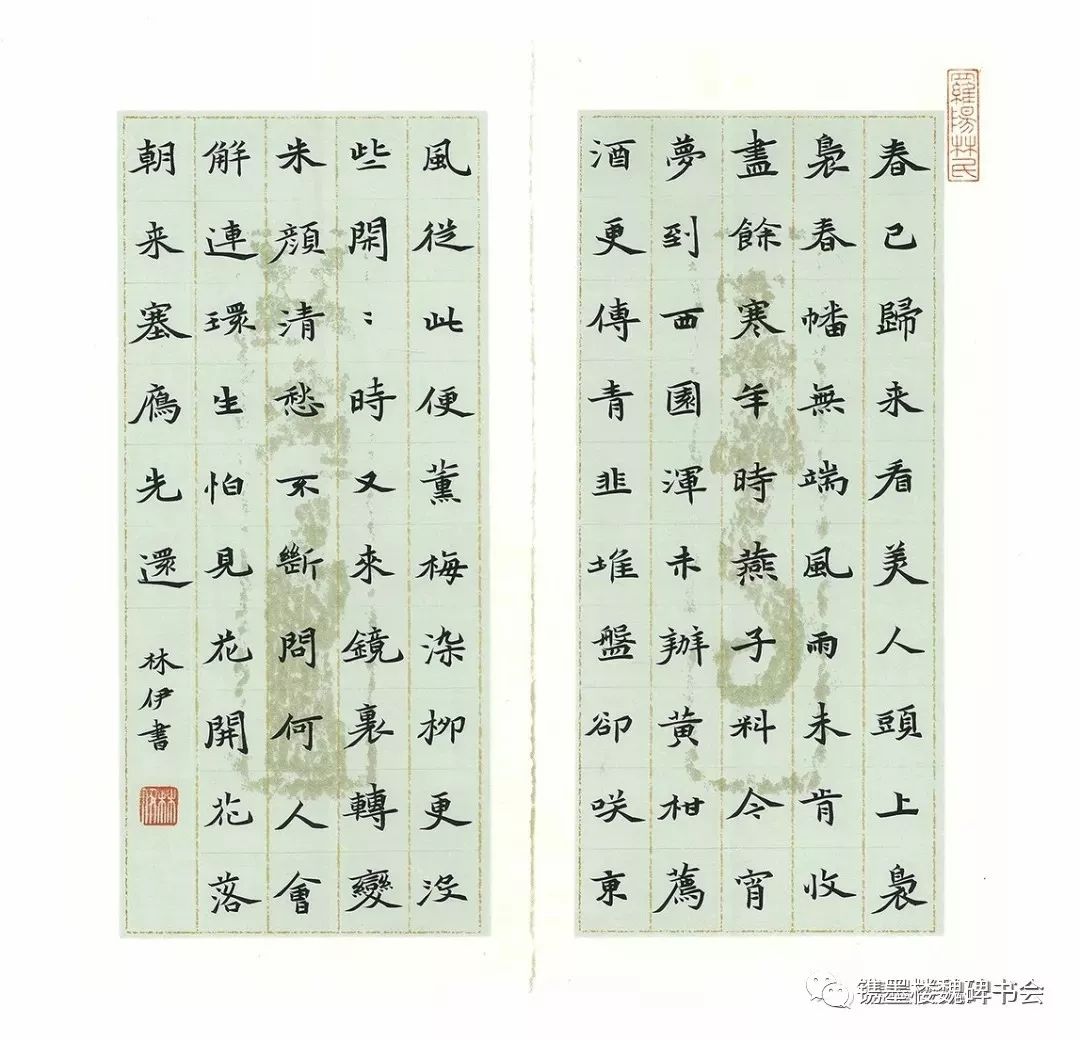 羅陽林氏
春已歸来看美人頭上裊
裊春幡無端風雨未肯收
盡餘寒年時燕子料今宵
夢到西園渾未辦黄柑薦
酒更傳青韭堆盤卻咲東
風從此便薰梅染柳更没
些閑〻時又來鏡裏轉變
朱顔清愁不斷問何人會
解連環生怕見花開花落
朝来塞鴈先還
林伊書
镌墨楼魏碑书会